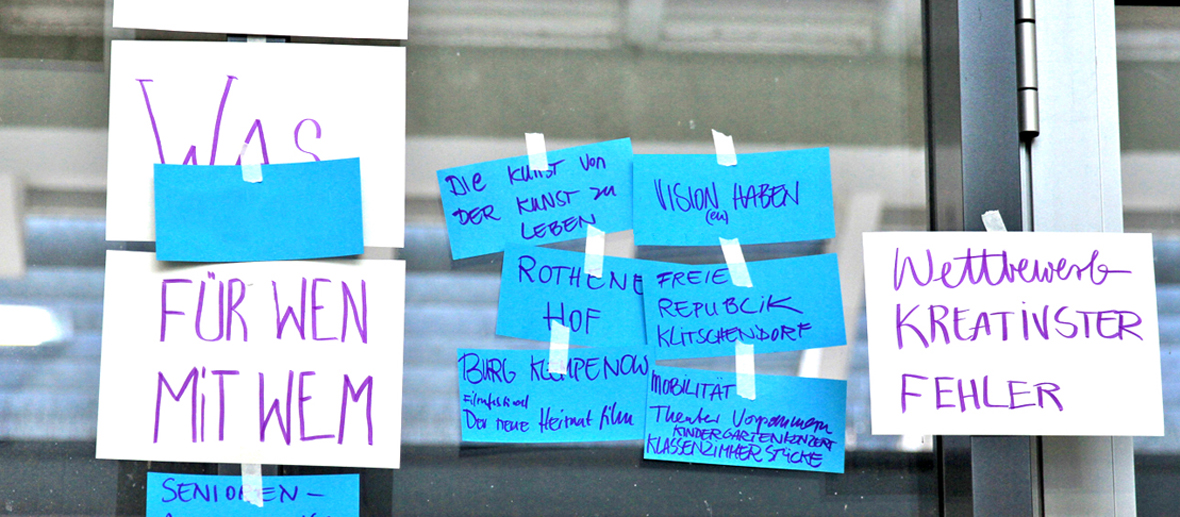 WAS
FÜR WEN
MIT WEM
SENIOREN –
DIE KUNST von
DER KUNST zu
LEBEN
VISION HABEN
(en)
ROTHENE
HOF
FREIE
REPUBLIK
KLITSCHENDORF
BURG KLEMPENOW
Filmfestival
Der neue Heimatfilm
MOBILITÄT
Theater Vorpommern
KINDERGARTENKONZERT
KLASSENZIMMERSTÜCKE
Wettbewerb
KREATIVSTER
FEHLER